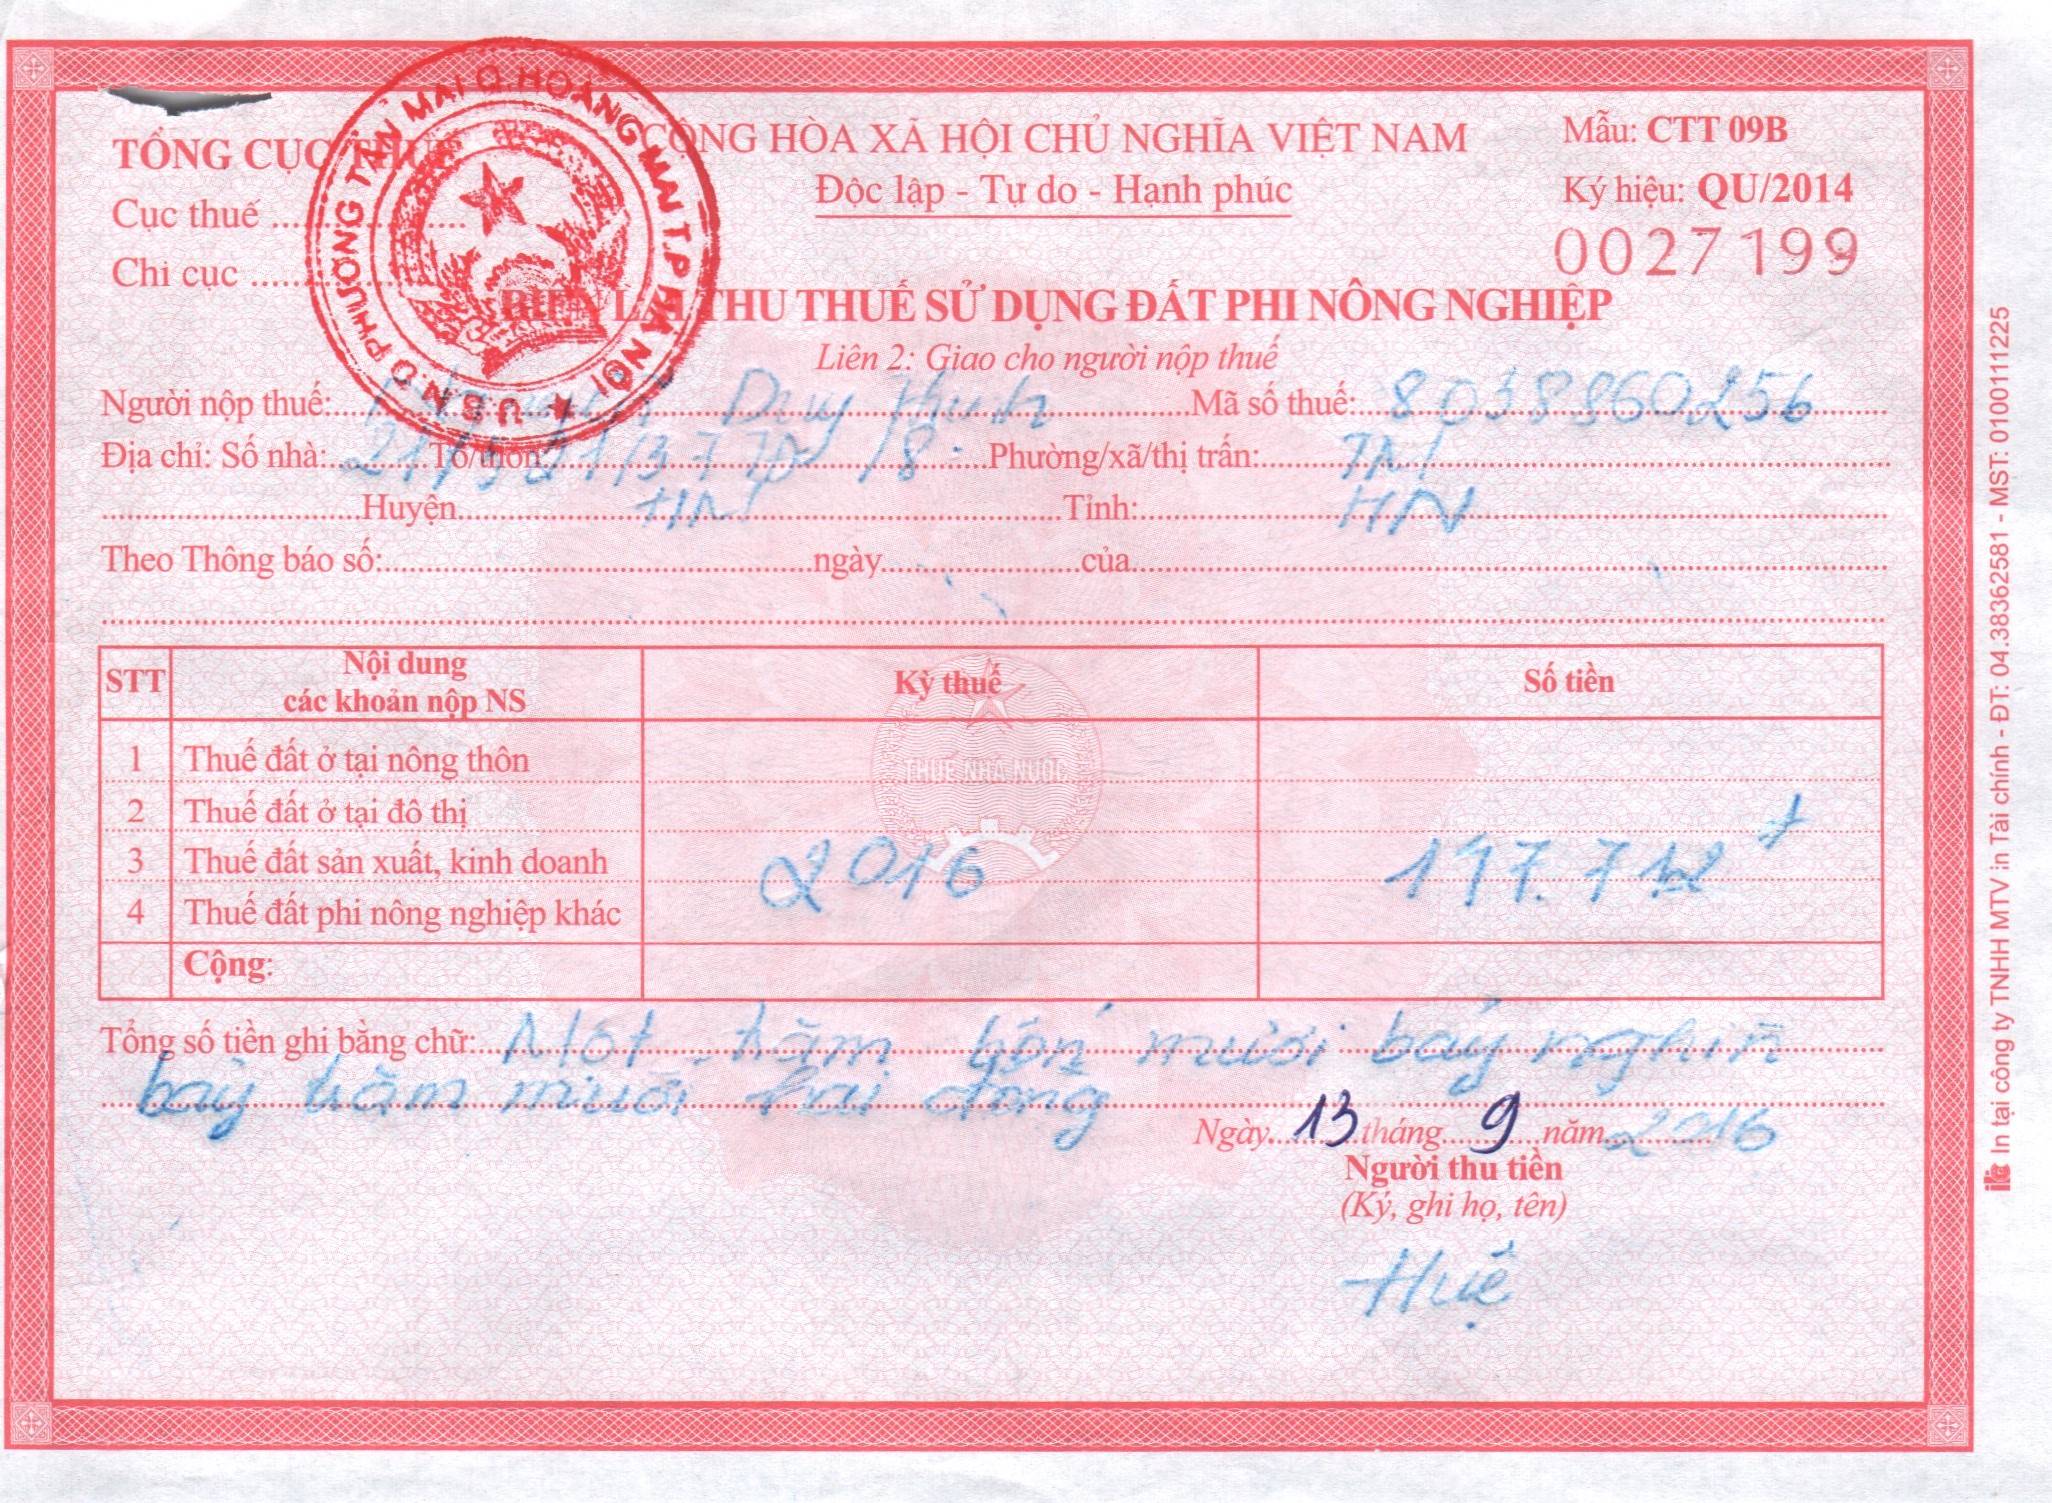 U.B.N.D PHƯỜNG TÂN MAI Q.HOÀNG MAI T.P HÀ NỘI
TỔNG CỤC THUẾ
Cục thuế
Chi cục
CỘNG HÒA XÃ HỘI CHỦ NGHĨA VIỆT NAM
Độc lập - Tự do - Hạnh phúc
Mẫu: CTT 09B
Ký hiệu: QU/2014
0027199
BIÊN LAI THU THUẾ SỬ DỤNG ĐẤT PHI NÔNG NGHIỆP
Liên 2: Giao cho người nộp thuế
Người nộp thuế: Duy Mã số thuế: 8038860256
Địa chỉ: Số nhà: Tổ/thôn: Phường/xã/thị trấn: TM
Huyện HM Tỉnh: HN
Theo Thông báo số: ngày của
STT Nội dung các khoản nộp NS Kỳ thuế Số tiền
THUẾ NHÀ NƯỚC
1 Thuế đất ở tại nông thôn
2 Thuế đất ở tại đô thị
3 Thuế đất sản xuất, kinh doanh 2016 147.712
4 Thuế đất phi nông nghiệp khác
Cộng:
Tổng số tiền ghi bằng chữ: Một trăm bốn mươi bảy nghìn
bảy trăm mười hai đồng
Ngày 13 tháng 9 năm 2016
Người thu tiền
(Ký, ghi họ, tên)
Huệ
In tại công ty TNHH MTV in Tài chính - ĐT: 04.38362581 - MST: 0100111225